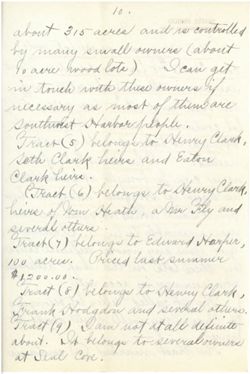 10.
about 315 acres and is controlled
by many small owners (about
10 acre wood lots) I can get
in touch with these owners if
necessary as most of them are
Southwest Harbor people.
Tract (5) belongs to Henry Clark,
Seth Clark heirs and Eaton
Clark heirs.
(Tract (6) belongs to Henry Clark,
heirs of Wm Heath, a Mr and
several others.
Tract (7) belongs to Edward Harper,
100 acres. Priced last summer
$1200.00.
Tract (8) belongs to Henry Clark,
Frank Hodgdon and several others.
Tract (9) I am not at all definite
about. It belongs to several owners
at Seal Cove.